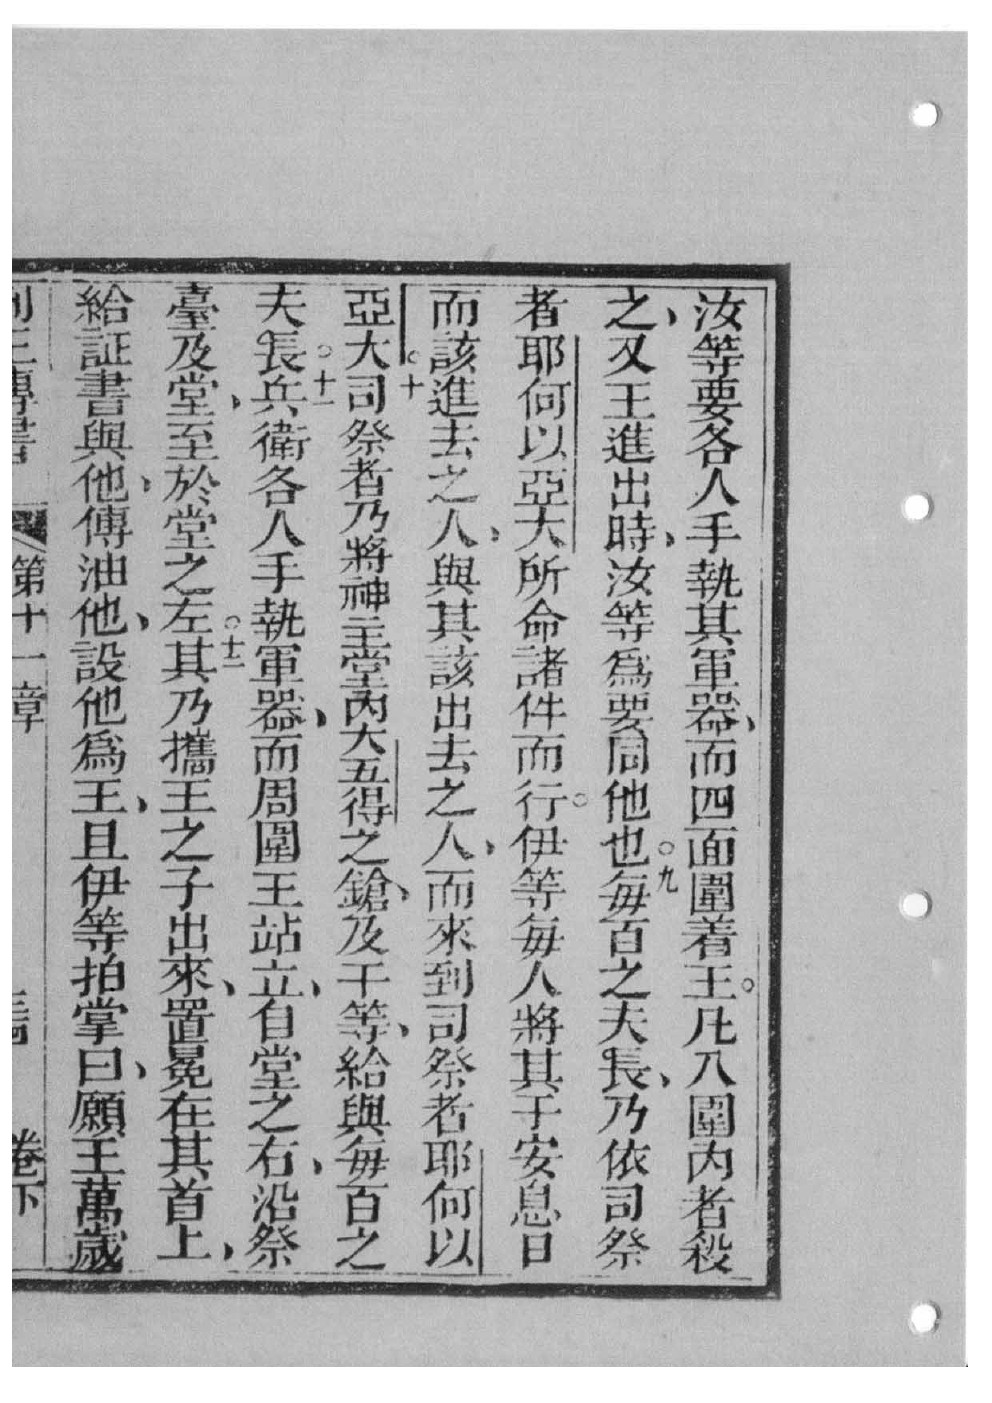 汝等要各人手執其軍器、而四面圍着王。凡入圍內者殺
之、又王進出時、汝等爲要同他也。九每百之夫長、乃依司祭
者耶何以亞大所命諸件而行。伊等每人將其于安息日
而該進去之人、與其該出去之人、而來到司祭者耶何以
亞大。十司祭者乃將神主堂內大五得之鎗、及干等、給與每百之
夫長。十一兵衛各人手執軍器、而周圍王站立、自堂之右、沿祭
臺及堂、至於堂之左。十二其乃攜王之子出來、置冕在其首上、
給証書與他、傅油他、設他爲王、且伊等拍掌曰、願王萬歲
列王傳書 第十一章 卷下